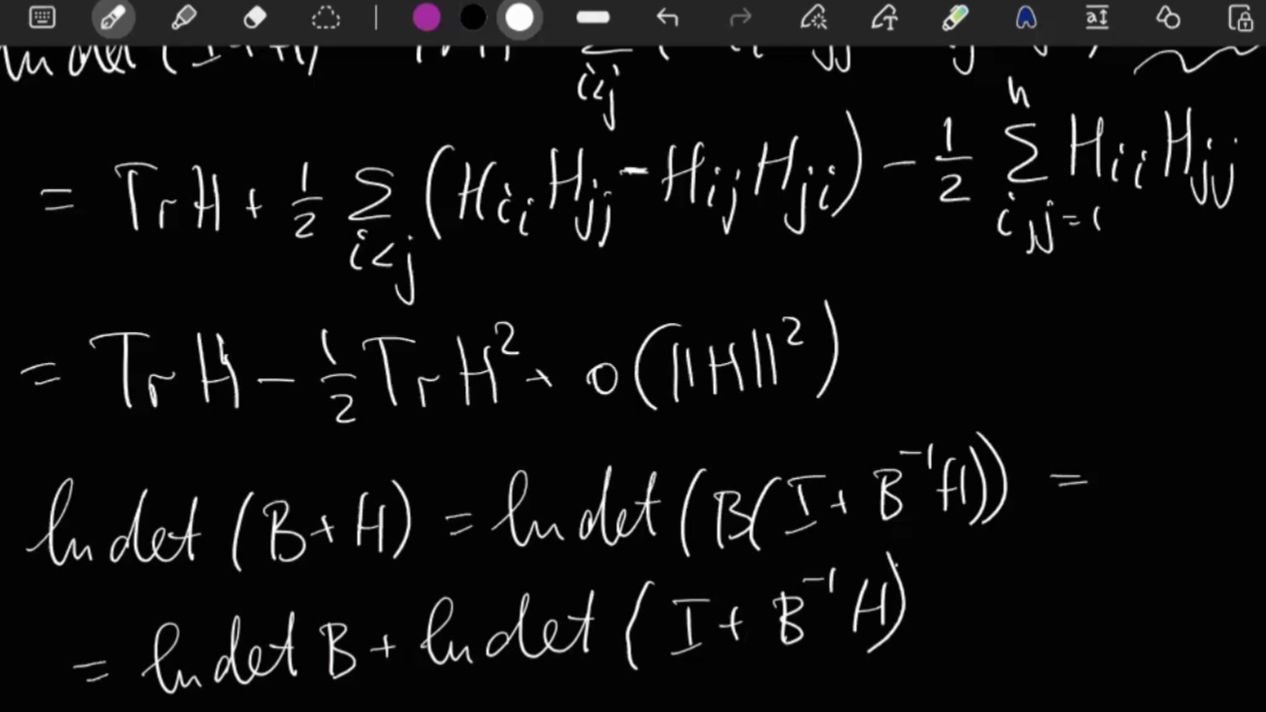 i<j
= Tr H + 1/2 Σ_{i<j} (H_{ii} H_{jj} - H_{ij} H_{ji}) - 1/2 Σ_{i,j=1}^{n} H_{ii} H_{jj}
= Tr H - 1/2 Tr H² + o(||H||²)
ln det (B + H) = ln det (B(I + B⁻¹H)) =
= ln det B + ln det (I + B⁻¹H)